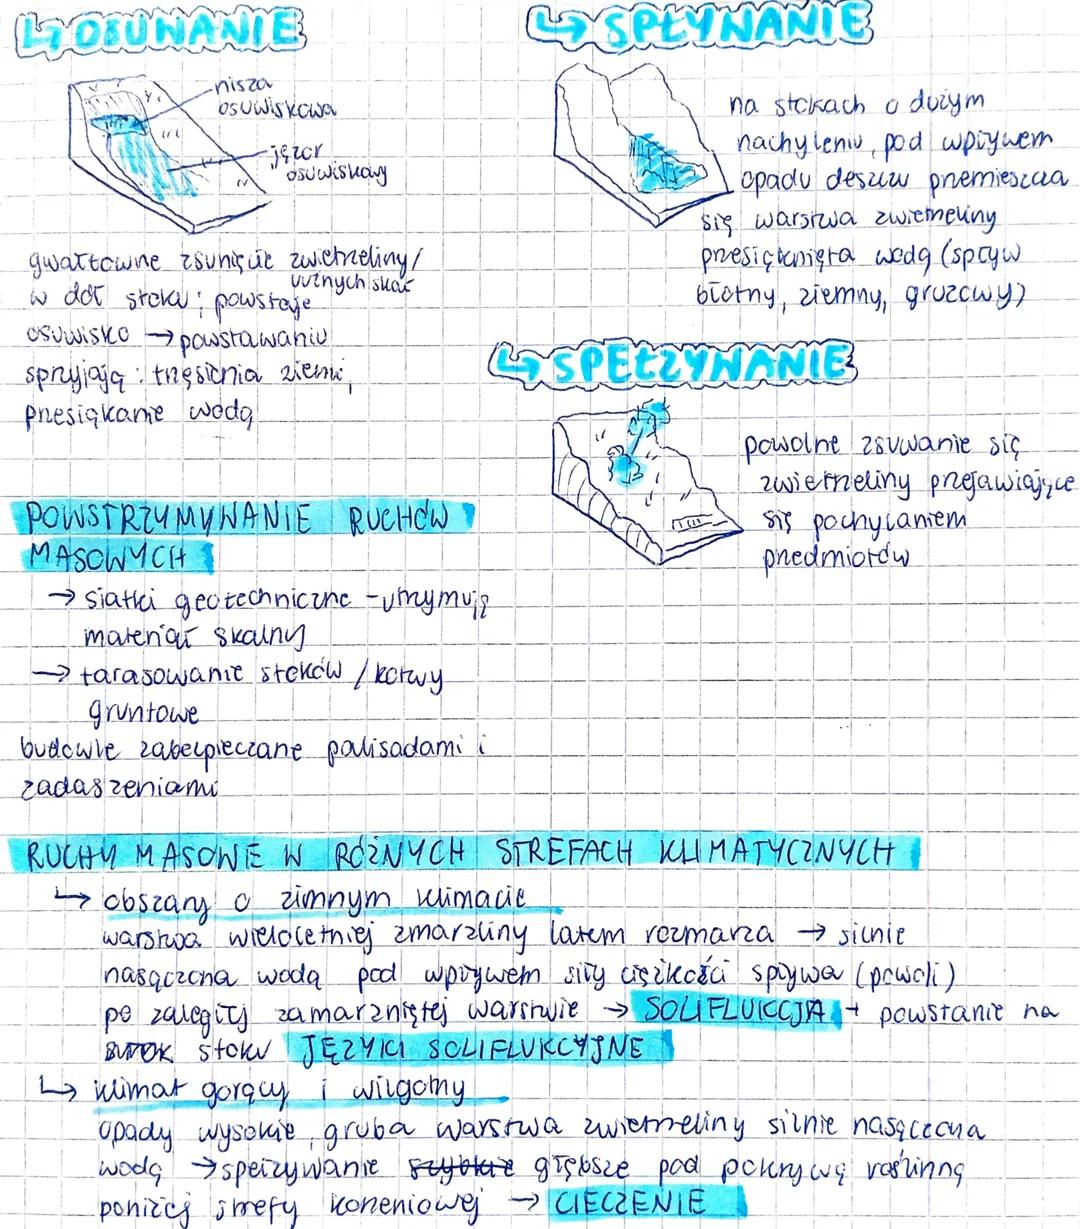 ↳ OSUWANIE
nisza
osuwiskowa
jęzor
osuwiskowy
gwałtowne zsunięcie zwietrzeliny/
luźnych skał
w dół stoku; powstaje
osuwisko → powstawaniu
sprzyjają: trzęsienia ziemi,
przesiąkanie wodą
↳ SPŁYWANIE
na stokach o dużym
nachyleniu, pod wpływem
opadu deszczu przemieszcza
się warstwa zwietrzeliny
przesiąknięta wodą (spływ
błotny, ziemny, gruzowy)
↳ SPEŁZYWANIE
powolne zsuwanie się
zwietrzeliny przejawiające
się pochylaniem
przedmiotów
POWSTRZYMYWANIE RUCHÓW
MASOWYCH
→ siatki geotechniczne - utrzymują
materiał skalny
→ tarasowanie stoków / kotwy
gruntowe
budowle zabezpieczane palisadami i
zadaszeniami
RUCHY MASOWE W RÓŻNYCH STREFACH KLIMATYCZNYCH
↳ obszary o zimnym klimacie
warstwa wieloletniej zmarzliny latem rozmarza → silnie
nasączona wodą pod wpływem siły ciężkości spływa (powoli)
po zaległej zamarzniętej warstwie → SOLIFLUKCJA + powstanie na
stoku JĘZYKI SOLIFLUKCYJNE
↳ klimat gorący i wilgotny
opady wysokie, gruba warstwa zwietrzeliny silnie nasączona
wodą → spełzywanie szybkie głębsze pod pokrywą roślinną
poniżej strefy korzeniowej → CIECZENIE